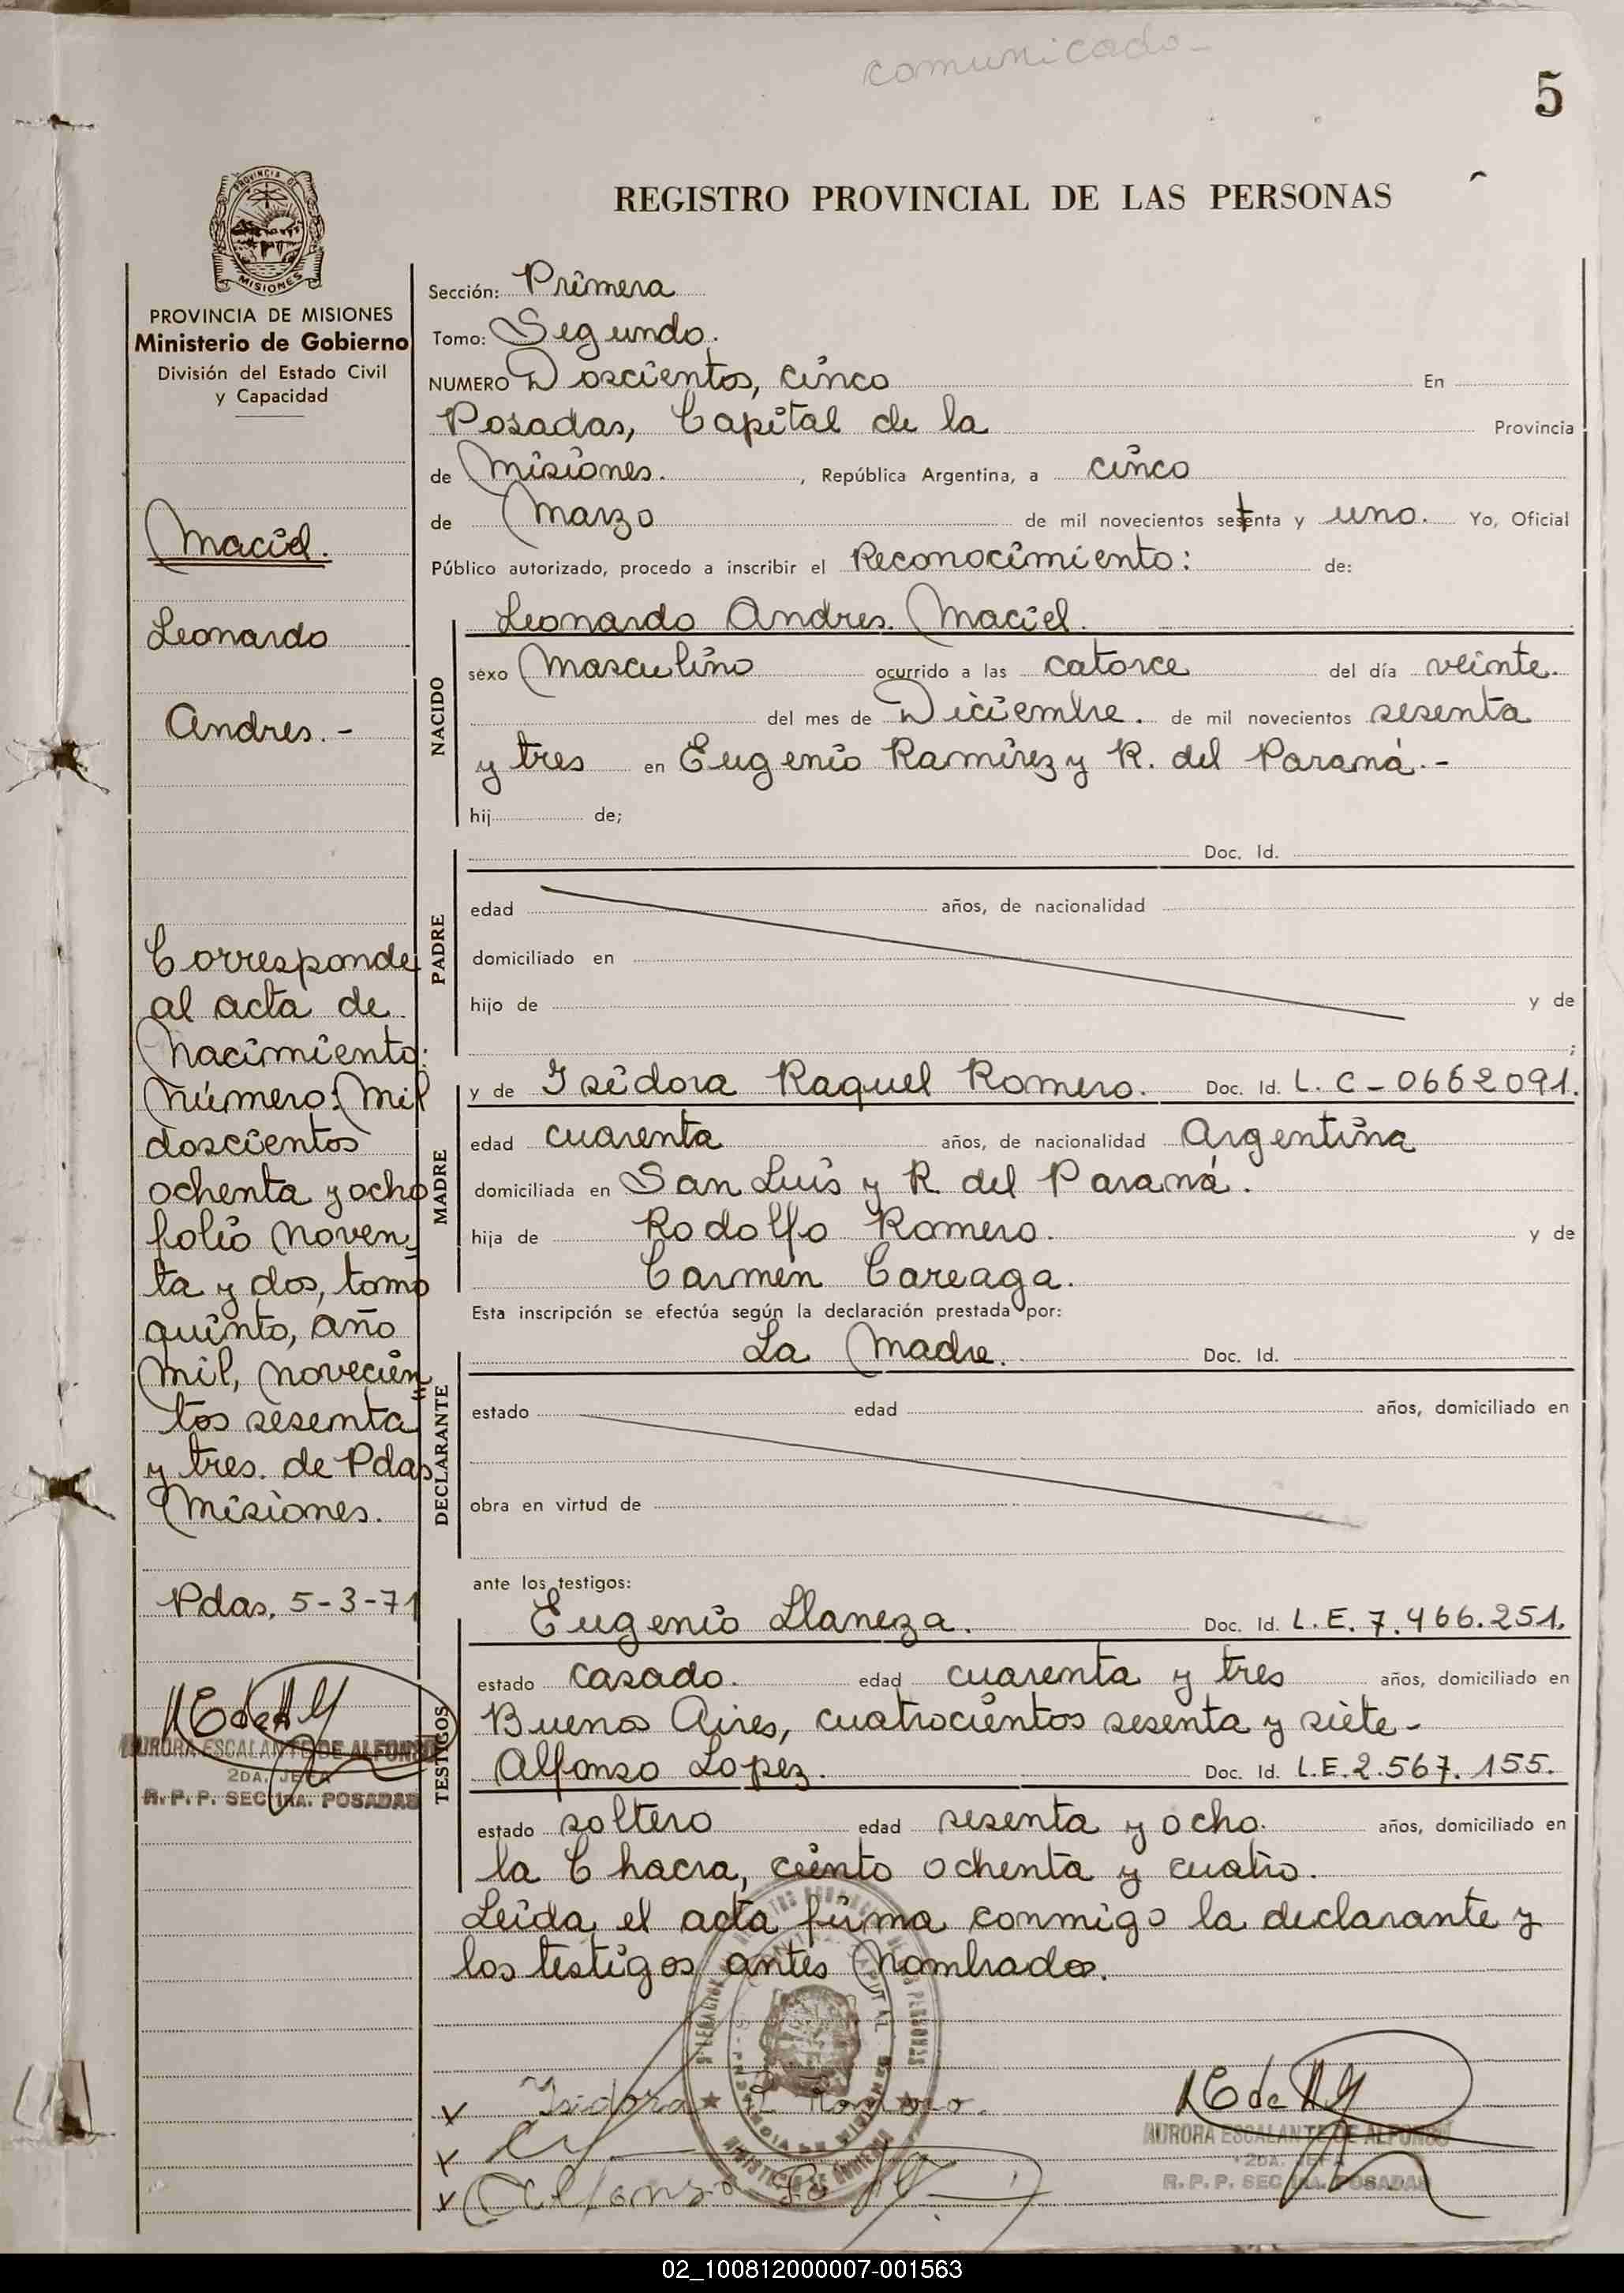 comunicado -
5
PROVINCIA DE
MISIONES
REGISTRO PROVINCIAL DE LAS PERSONAS
PROVINCIA DE MISIONES
Ministerio de Gobierno
División del Estado Civil
y Capacidad
Maciel.
Leonardo
Andres. -
Corresponde
al acta de
Nacimiento:
Número: Mil
doscientos
ochenta y ocho
folio noven
ta y dos, tomo
quinto, año
mil, novecien
tos sesenta
y tres. de Pdas
Misiones.
Pdas, 5-3-71
AURORA ESCALANTE DE ALFONSO
2DA. JEFA
R. P. P. SEC 1RA. POSADAS
Sección: Primera
Tomo: Segundo.
NUMERO Doscientos, cinco En
Posadas, Capital de la Provincia
de Misiones. , República Argentina, a cinco
de Marzo de mil novecientos setenta y uno. Yo, Oficial
Público autorizado, procedo a inscribir el Reconocimiento: de:
NACIDO
Leonardo Andres. Maciel.
sexo Masculino ocurrido a las catorce del día veinte.
del mes de Diciembre. de mil novecientos sesenta
y tres en Eugenio Ramirez y R. del Paraná. -
hij de;
PADRE
Doc. Id.
edad años, de nacionalidad
domiciliado en
hijo de y de
;
MADRE
y de Isidora Raquel Romero. Doc. Id. L. C - 0662091.
edad cuarenta años, de nacionalidad Argentina
domiciliada en San Luis y R. del Paraná.
hija de Rodolfo Romero. y de
Carmen Careaga.
Esta inscripción se efectúa según la declaración prestada por:
DECLARANTE
La Madre. Doc. Id.
estado edad años, domiciliado en
obra en virtud de
ante los testigos:
TESTIGOS
Eugenio Llaneza. Doc. Id. L.E. 7.466.251.
estado casado. edad cuarenta y tres años, domiciliado en
Buenos Aires, cuatrocientos sesenta y siete -
Alfonso Lopez. Doc. Id. L.E. 2.567.155.
estado soltero edad sesenta y ocho. años, domiciliado en
la Chacra, ciento ochenta y cuatro.
Leida el acta firma conmigo la declarante y
los testigos antes Nombrados.
Isidora R Romero.
Alfonso
AURORA ESCALANTE DE ALFONSO
2DA. JEFA
R. P. P. SEC 1RA. POSADAS
02_100812000007-001563